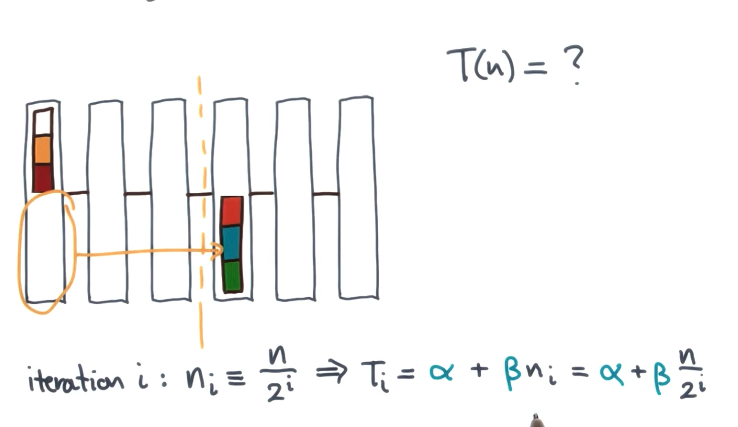 T(n) = ?
iteration i : nᵢ ≡ n/2ⁱ ⇒ Tᵢ = α + βnᵢ = α + β n/2ⁱ